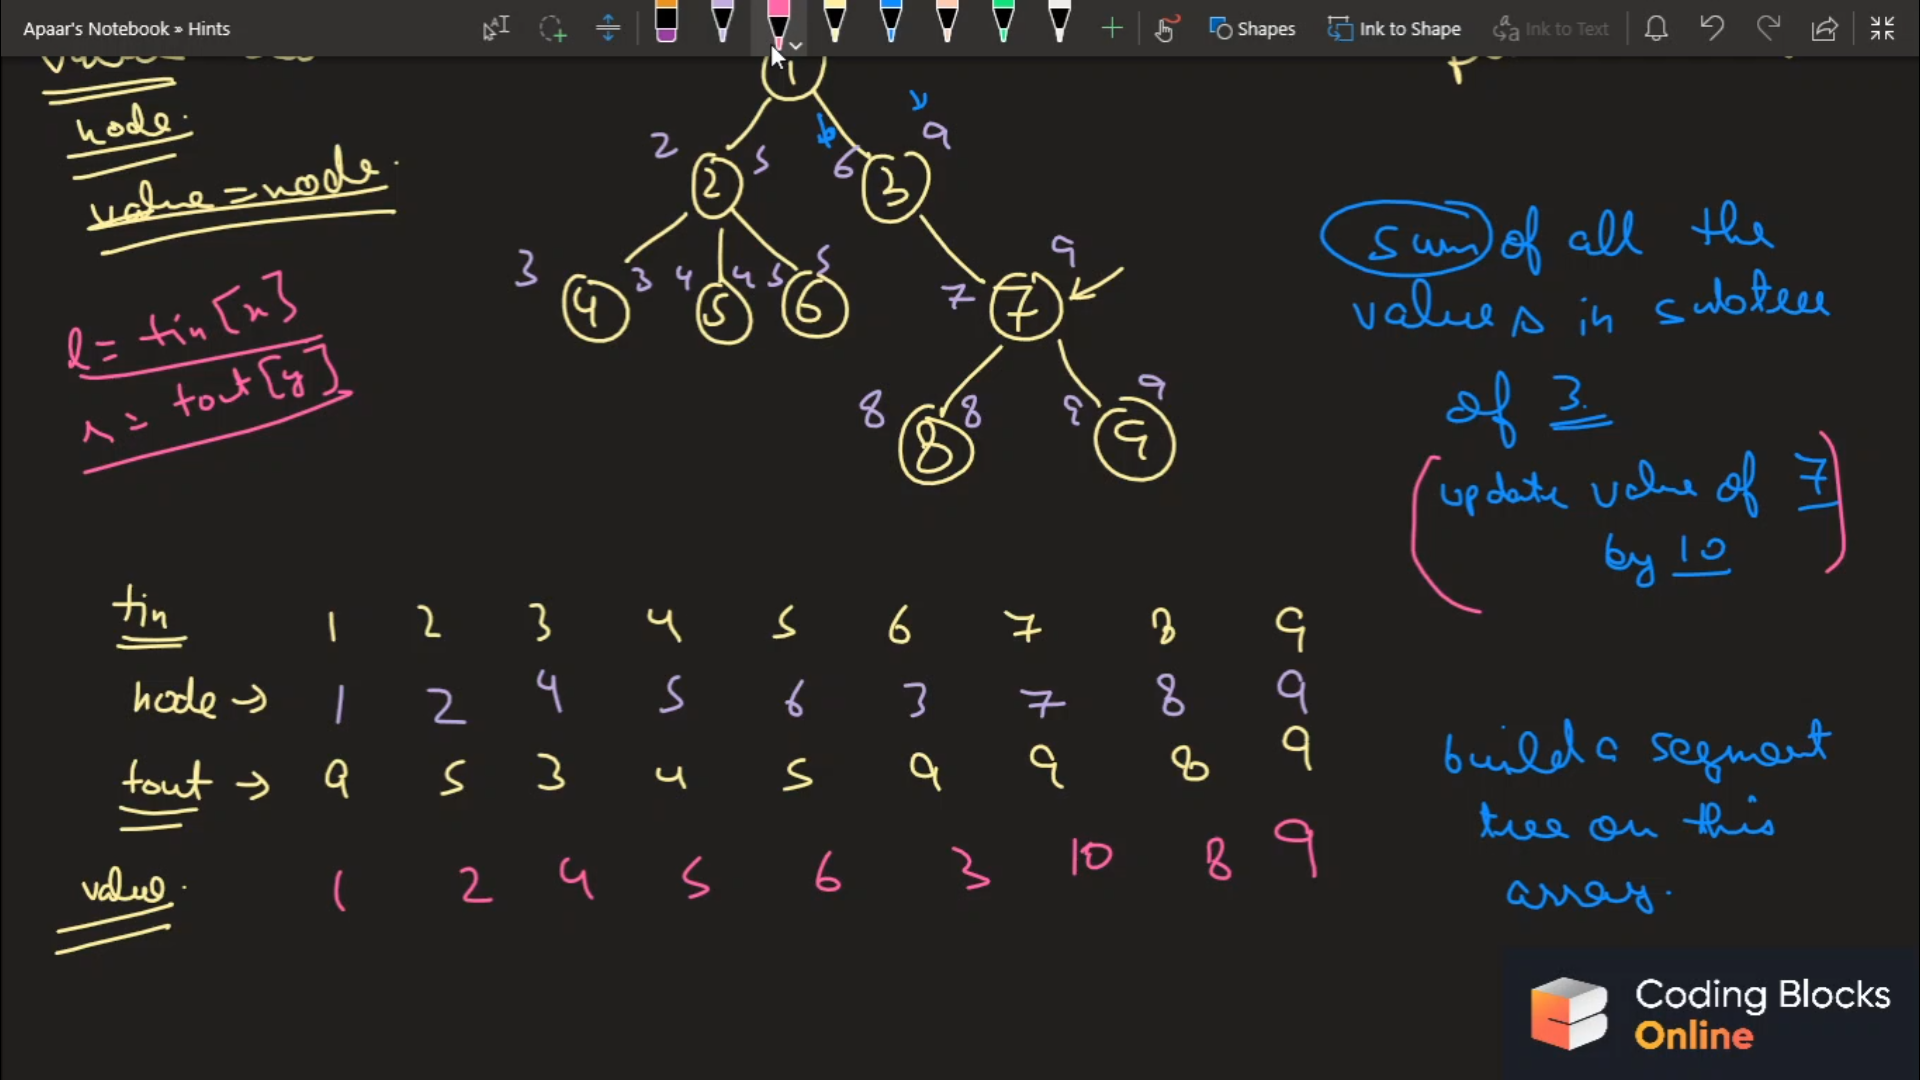 Apaar's Notebook » Hints
Shapes
Ink to Shape
Ink to Text
node.
value = node.
l = tin[x]
r = tout[y]
1
2 2 5
6 3 9
3 4 3
4 5 4
5 6 5
7 7 9
8 8 8
9 9 9
sum of all the
values in subtree
of 3.
(update value of 7
by 10)
tin 1 2 3 4 5 6 7 8 9
node → 1 2 4 5 6 3 7 8 9
tout → 9 5 3 4 5 9 9 8 9
value. 1 2 4 5 6 3 10 8 9
build a segment
tree on this
array.
Coding Blocks
Online